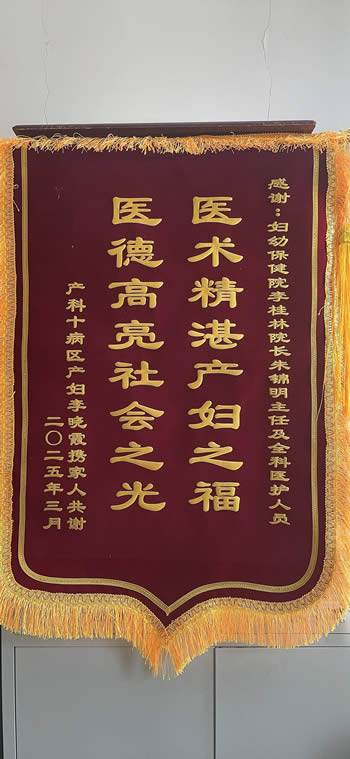 感谢：妇幼保健院李桂林院长朱锦明主任及全科医护人员
医术精湛产妇之福
医德高亮社会之光
产科十病区产妇李晓霞携家人共谢
二〇二五年三月